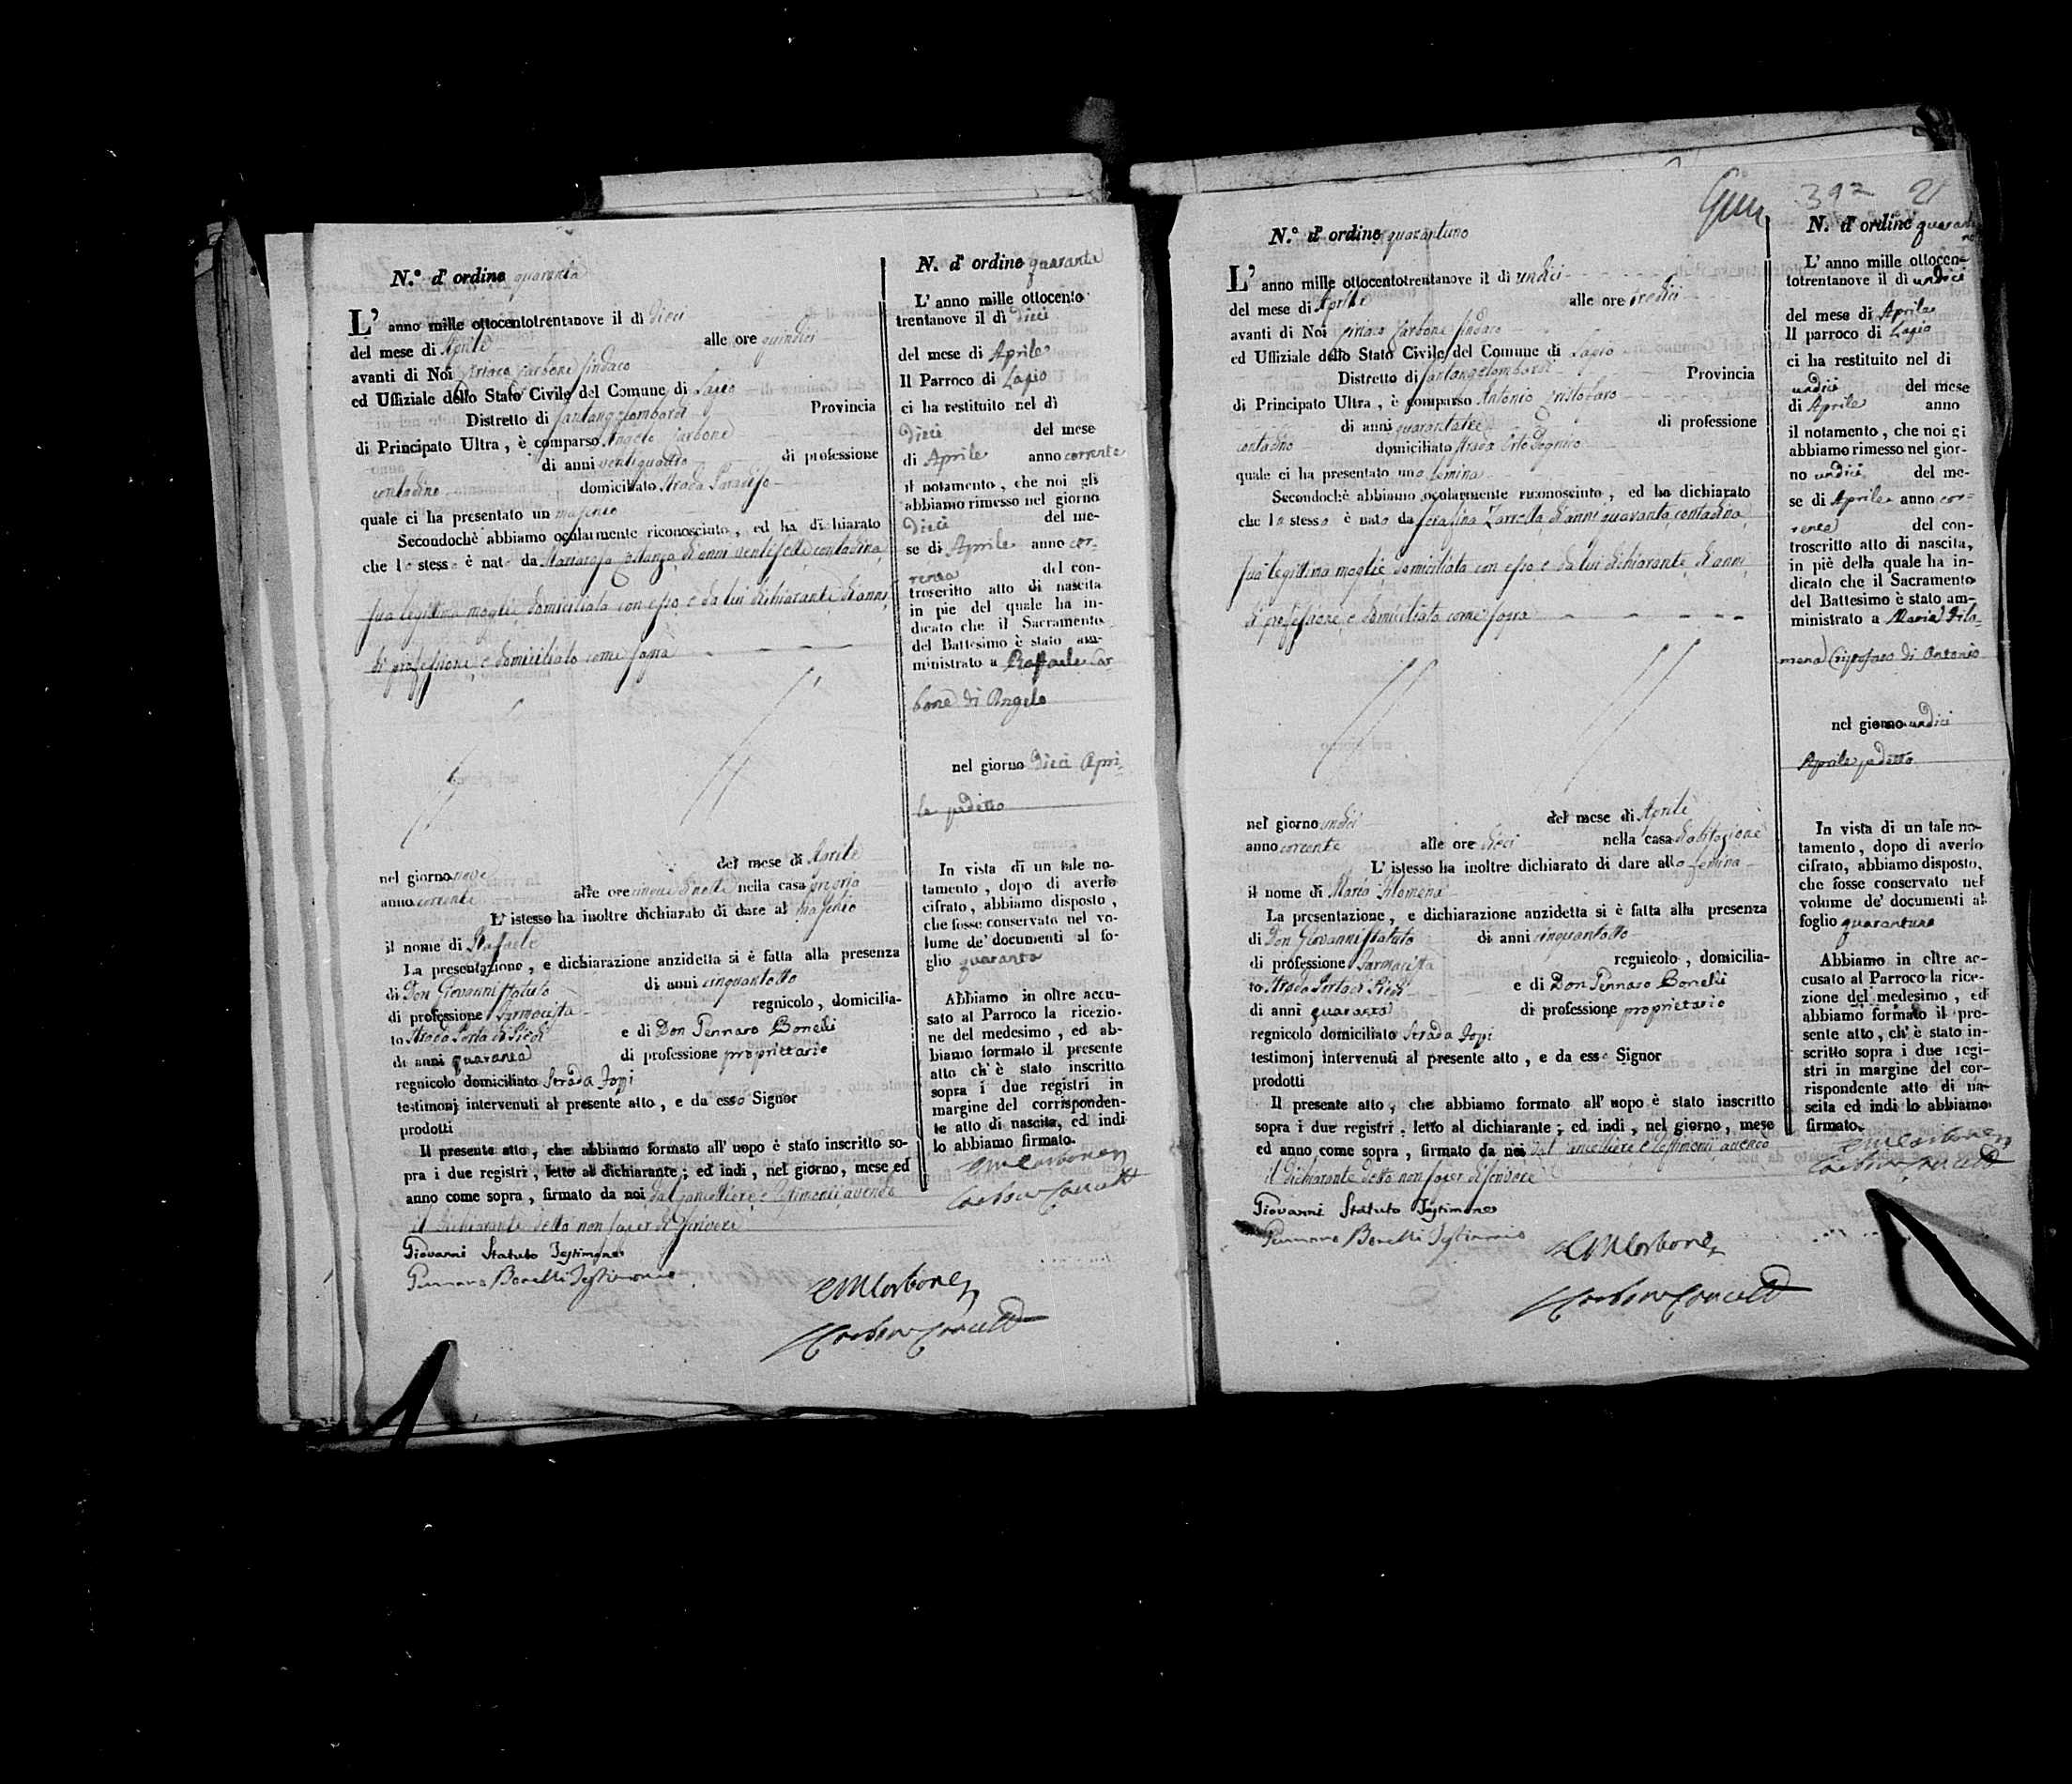 N.° d' ordine quaranta
L' anno mille ottocentotrentanove il dì dieci
del mese di Aprile alle ore quindici
avanti di Noi Ciriaco Carbone Sindaco
ed Uffiziale dello Stato Civile del Comune di Lapio
Distretto di Santangelolombardi Provincia
di Principato Ultra, è comparso Angelo Carbone
di anni ventiquattro di professione
contadino domiciliato Strada Paradiso
quale ci ha presentato un maschio
Secondochè abbiamo ocularmente riconosciuto, ed ha dichiarato
che lo stesso è nato da Mariarosa di anni ventisette contadina
sua legittima moglie domiciliata con esso e da lui dichiarante di anni
di professione, e domiciliato come sopra
nel giorno nove del mese di Aprile
anno corrente alle ore cinque di notte nella casa propria
L' istesso ha inoltre dichiarato di dare al maschio
il nome di Rafaele
La presentazione, e dichiarazione anzidetta si è fatta alla presenza
di Don Giovanni Statuto di anni cinquantotto
di professione Farmacista regnicolo, domicilia-
to Strada Porta di Piedi e di Don Gennaro Bonelli
di anni quaranta di professione proprietario
regnicolo domiciliato Strada
testimonj intervenuti al presente atto, e da esso Signor
prodotti
Il presente atto, che abbiamo formato all' uopo è stato inscritto so-
pra i due registri, letto al dichiarante; ed indi, nel giorno, mese ed
anno come sopra, firmato da noi dal Cancelliere e Testimonii avendo
il dichiarante detto non saper di scrivere
Giovanni Statuto Testimone
Gennaro Bonelli Testimonio
N. d' ordine quaranta
L' anno mille ottocento
trentanove il dì dieci
del mese di Aprile
Il Parroco di Lapio
ci ha restituito nel dì
dieci del mese
di Aprile anno corrente
il notamento, che noi gli
abbiamo rimesso nel giorno
dieci del me-
se di Aprile anno cor-
rente del con-
troscritto atto di nascita
in piè del quale ha in-
dicato che il Sacramento
del Battesimo è stato am-
ministrato a Raffaele Car
bone di Angelo
nel giorno dieci Apri-
le pdetto
In vista di un tale no-
tamento, dopo di averlo
cifrato, abbiamo disposto,
che fosse conservato nel vo-
lume de' documenti al fo-
glio quaranta
Abbiamo in oltre accu-
sato al Parroco la ricezio-
ne del medesimo, ed ab-
biamo formato il presente
atto ch' è stato inscritto
sopra i due registri in
margine del corrisponden-
te atto di nascita, ed indi
lo abbiamo firmato.
392 21
N.° d' ordine quarantuno
L' anno mille ottocentotrentanove il dì undici
del mese di Aprile alle ore tredici
avanti di Noi Ciriaco Carbone Sindaco
ed Uffiziale dello Stato Civile del Comune di Lapio
Distretto di Santangelolombardi Provincia
di Principato Ultra, è comparso Antonio Cristofaro
di anni quarantatre di professione
contadino domiciliato Strada Orto
quale ci ha presentato una femina
Secondochè abbiamo ocularmente riconosciuto, ed ha dichiarato
che la stessa è nata da Serafina Zarrella di anni quaranta contadina
sua legittima moglie domiciliata con esso e da lui dichiarante di anni
di professione e domiciliato come sopra
nel giorno undici del mese di Aprile
anno corrente alle ore dieci nella casa d'abitazione
L' istesso ha inoltre dichiarato di dare alla femina
il nome di Maria Filomena
La presentazione, e dichiarazione anzidetta si è fatta alla presenza
di Don Giovanni Statuto di anni cinquantotto
di professione Farmacista regnicolo, domicilia-
to Strada Porta di Piedi e di Don Gennaro Bonelli
di anni quaranta di professione proprietario
regnicolo domiciliato Strada
testimonj intervenuti al presente atto, e da esso Signor
prodotti
Il presente atto, che abbiamo formato all' uopo è stato inscritto
sopra i due registri, letto al dichiarante; ed indi, nel giorno, mese
ed anno come sopra, firmato da noi dal Cancelliere e Testimonii avendo
il dichiarante detto non saper di scrivere
Giovanni Statuto Testimone
Gennaro Bonelli Testimonio
N. d' ordine quarantu
no
L' anno mille ottocen-
totrentanove il dì undici
del mese di Aprile
Il parroco di Lapio
ci ha restituito nel dì
undici del mese
di Aprile anno
il notamento, che noi gi
abbiamo rimesso nel gior-
no undici del me-
se di Aprile anno cor-
rente del con-
troscritto atto di nascita,
in piè della quale ha in-
dicato che il Sacramento
del Battesimo è stato am-
ministrato a Maria Filo-
mena Cristofaro di Antonio
nel giorno undici
Aprile pdetto
In vista di un tale no-
tamento, dopo di averlo
cifrato, abbiamo disposto,
che fosse conservato nel
volume de' documenti al
foglio quarantuno
Abbiamo in oltre ac-
cusato al Parroco la rice-
zione del medesimo, ed
abbiamo formato il pre-
sente atto, ch' è stato in-
scritto sopra i due regi-
stri in margine del cor-
rispondente atto di na-
scita ed indi lo abbiamo
firmato.